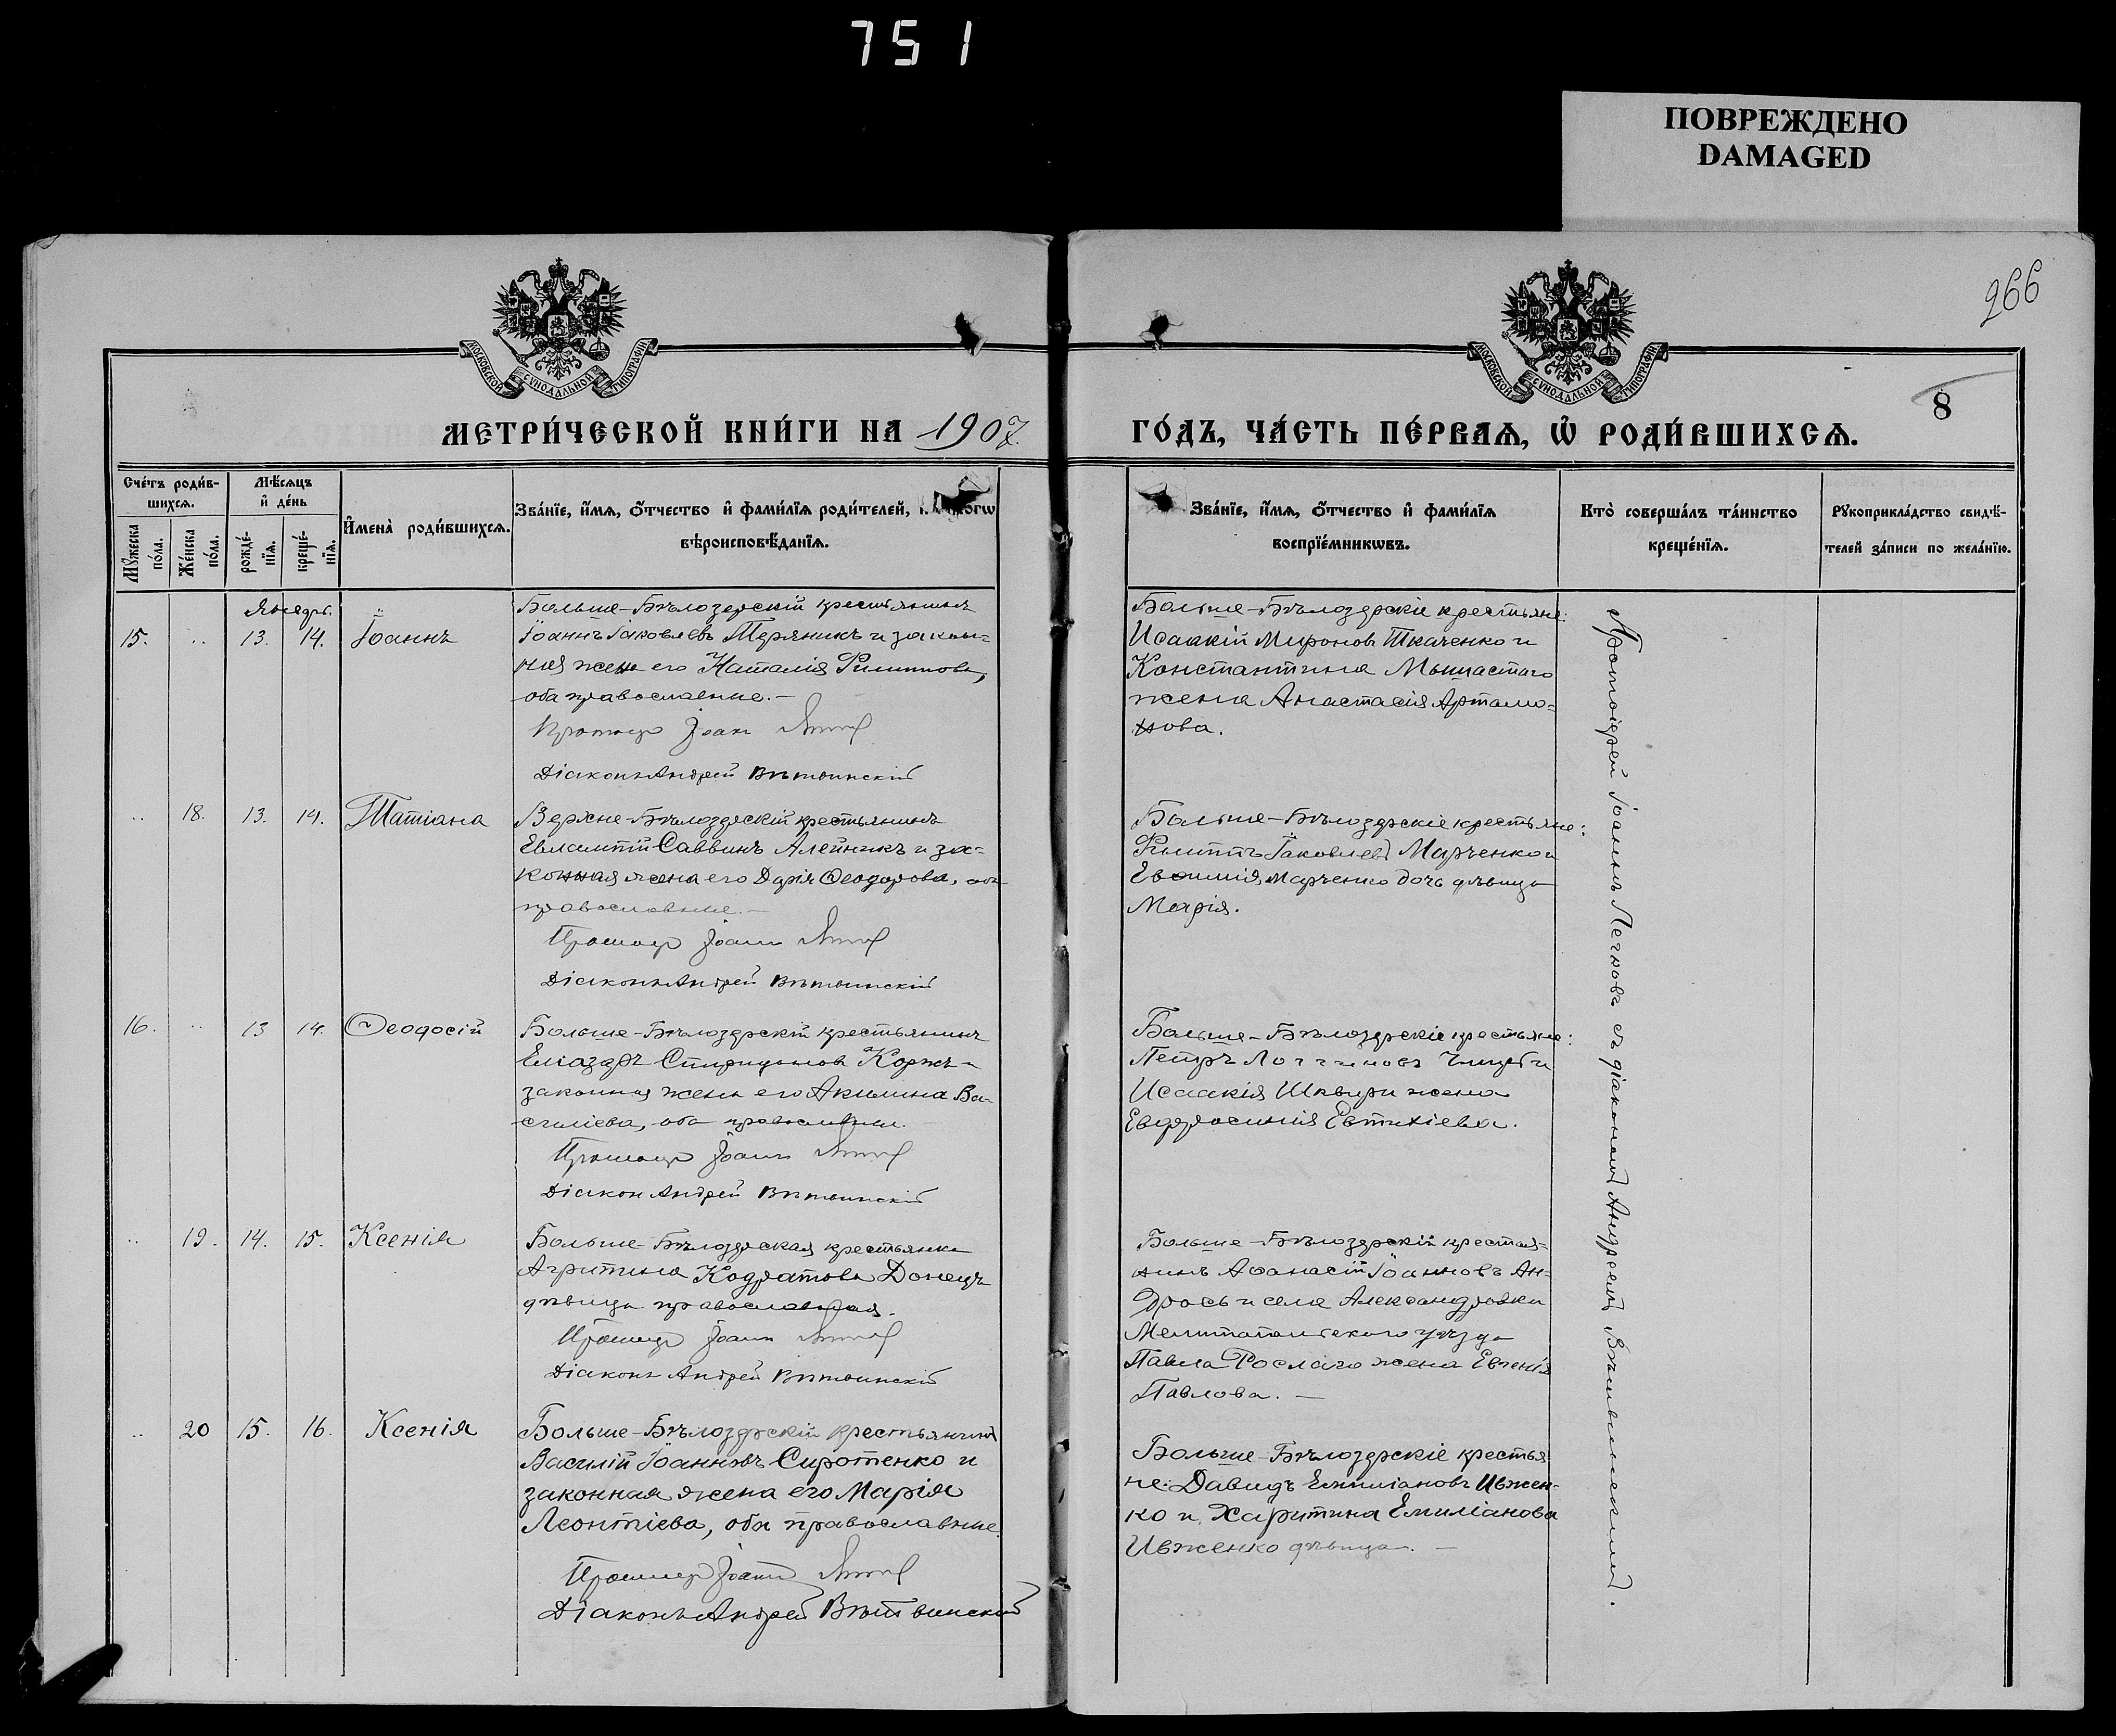 751
ПОВРЕЖДЕНО
DAMAGED
266
8
МОСКОВСКОЙ СѴНОДАЛЬНОЙ ТИПОГРАФІИ
МОСКОВСКОЙ СѴНОДАЛЬНОЙ ТИПОГРАФІИ
МЕТРИ́ЧЕСКОЙ КНИ́ГИ НА 1907.
ГО́ДЪ, ЧА́СТЬ ПЕ́РВАѦ, Ѡ҆ РОДИ́ВШИХСѦ.
Сче́тъ роди́в-
шихсѧ.
Мꙋжеска по́ла.
Же́нска по́ла.
Мѣ́сѧцъ
и҆ де́нь
рожде́-
нїѧ.
креще́-
нїѧ.
И҆мена̀ роди́вшихсѧ.
Зва́нїе, и҆́мѧ, ѻ҆́тчество и҆ фами́лїѧ роди́телей,
вѣроисповѣ́данїѧ.
Зва́нїе, и҆́мѧ, ѻ҆́тчество и҆ фами́лїѧ
воспрїе́мникѡвъ.
Кто̀ соверша́лъ та́инство
креще́нїѧ.
Рꙋкоприкла́дство свидѣ́-
телей за́писи по жела́нїю.
Январь.
15. .. 13. 14. Іоаннъ
Больше-Бѣлозерскій крестьянинъ
Іоаннъ Іаковлевъ Теряникъ и закон-
ная жена его Наталія Филиппова,
оба православные.-
Протоіер Іоан
Діаконъ Андрей Вѣтвинскій
Больше-Бѣлозерскіе крестьяне:
Исаакій Миронов Ткаченко и
Константина Мышастаго
жена Анастасія Артамо-
нова.
.. 18. 13. 14. Татіана
Верхне-Бѣлозерскій крестьянинъ
Евлампій Саввинъ Алейникъ и за-
конная жена его Дарія Ѳеодорова, оба
православные.-
Протоіер Іоанн
Діаконъ Андрей Вѣтвинскій
Больше-Бѣлозерскіе крестьяне:
Филиппъ Іаковлевъ Марченко и
Евѳимія Марченко дочь дѣвица
Марія.
16. .. 13 14. Ѳеодосій
Больше-Бѣлозерскій крестьянинъ
Еліазаръ Спиридонов Коржъ и
законная жена его Акилина Ва-
силіева, оба православные.
Протоіер Іоанн
Діакон Андрей Вѣтвинскій
Больше-Бѣлозерскіе крестьяне:
Петръ
Исаакія Шквири жена
Евфросинія Евтихіева.
.. 19. 14. 15. Ксенія
Больше-Бѣлозерская крестьянка
Агрипина Кодратова Донецъ
дѣвица православная.
Протоіер Іоанн
Діаконъ Андрей Вѣтвинскій
Больше-Бѣлозерскій крестья-
нинъ Аѳанасій Іоанновъ Ан-
дрось и села Александровки
Мелитопольскаго уѣзда
Павла Рослаго жена Евгенія
Павлова. -
.. 20 15. 16. Ксенія
Больше-Бѣлозерскій крестьянинъ
Василій Іоанновъ Сиротенко и
законная жена его Марія
Леонтіева, оба православные.
Протоіер Іоанн
Діаконъ Андрей Вѣтвинскій
Больше-Бѣлозерскіе крестья-
не: Давидъ Емиліановъ Ивжен-
ко и Харитина Емиліанова
Ивженко дѣвица. -
Протоіерей Іоаннъ съ діакономъ Андреемъ Вѣтвинскимъ.